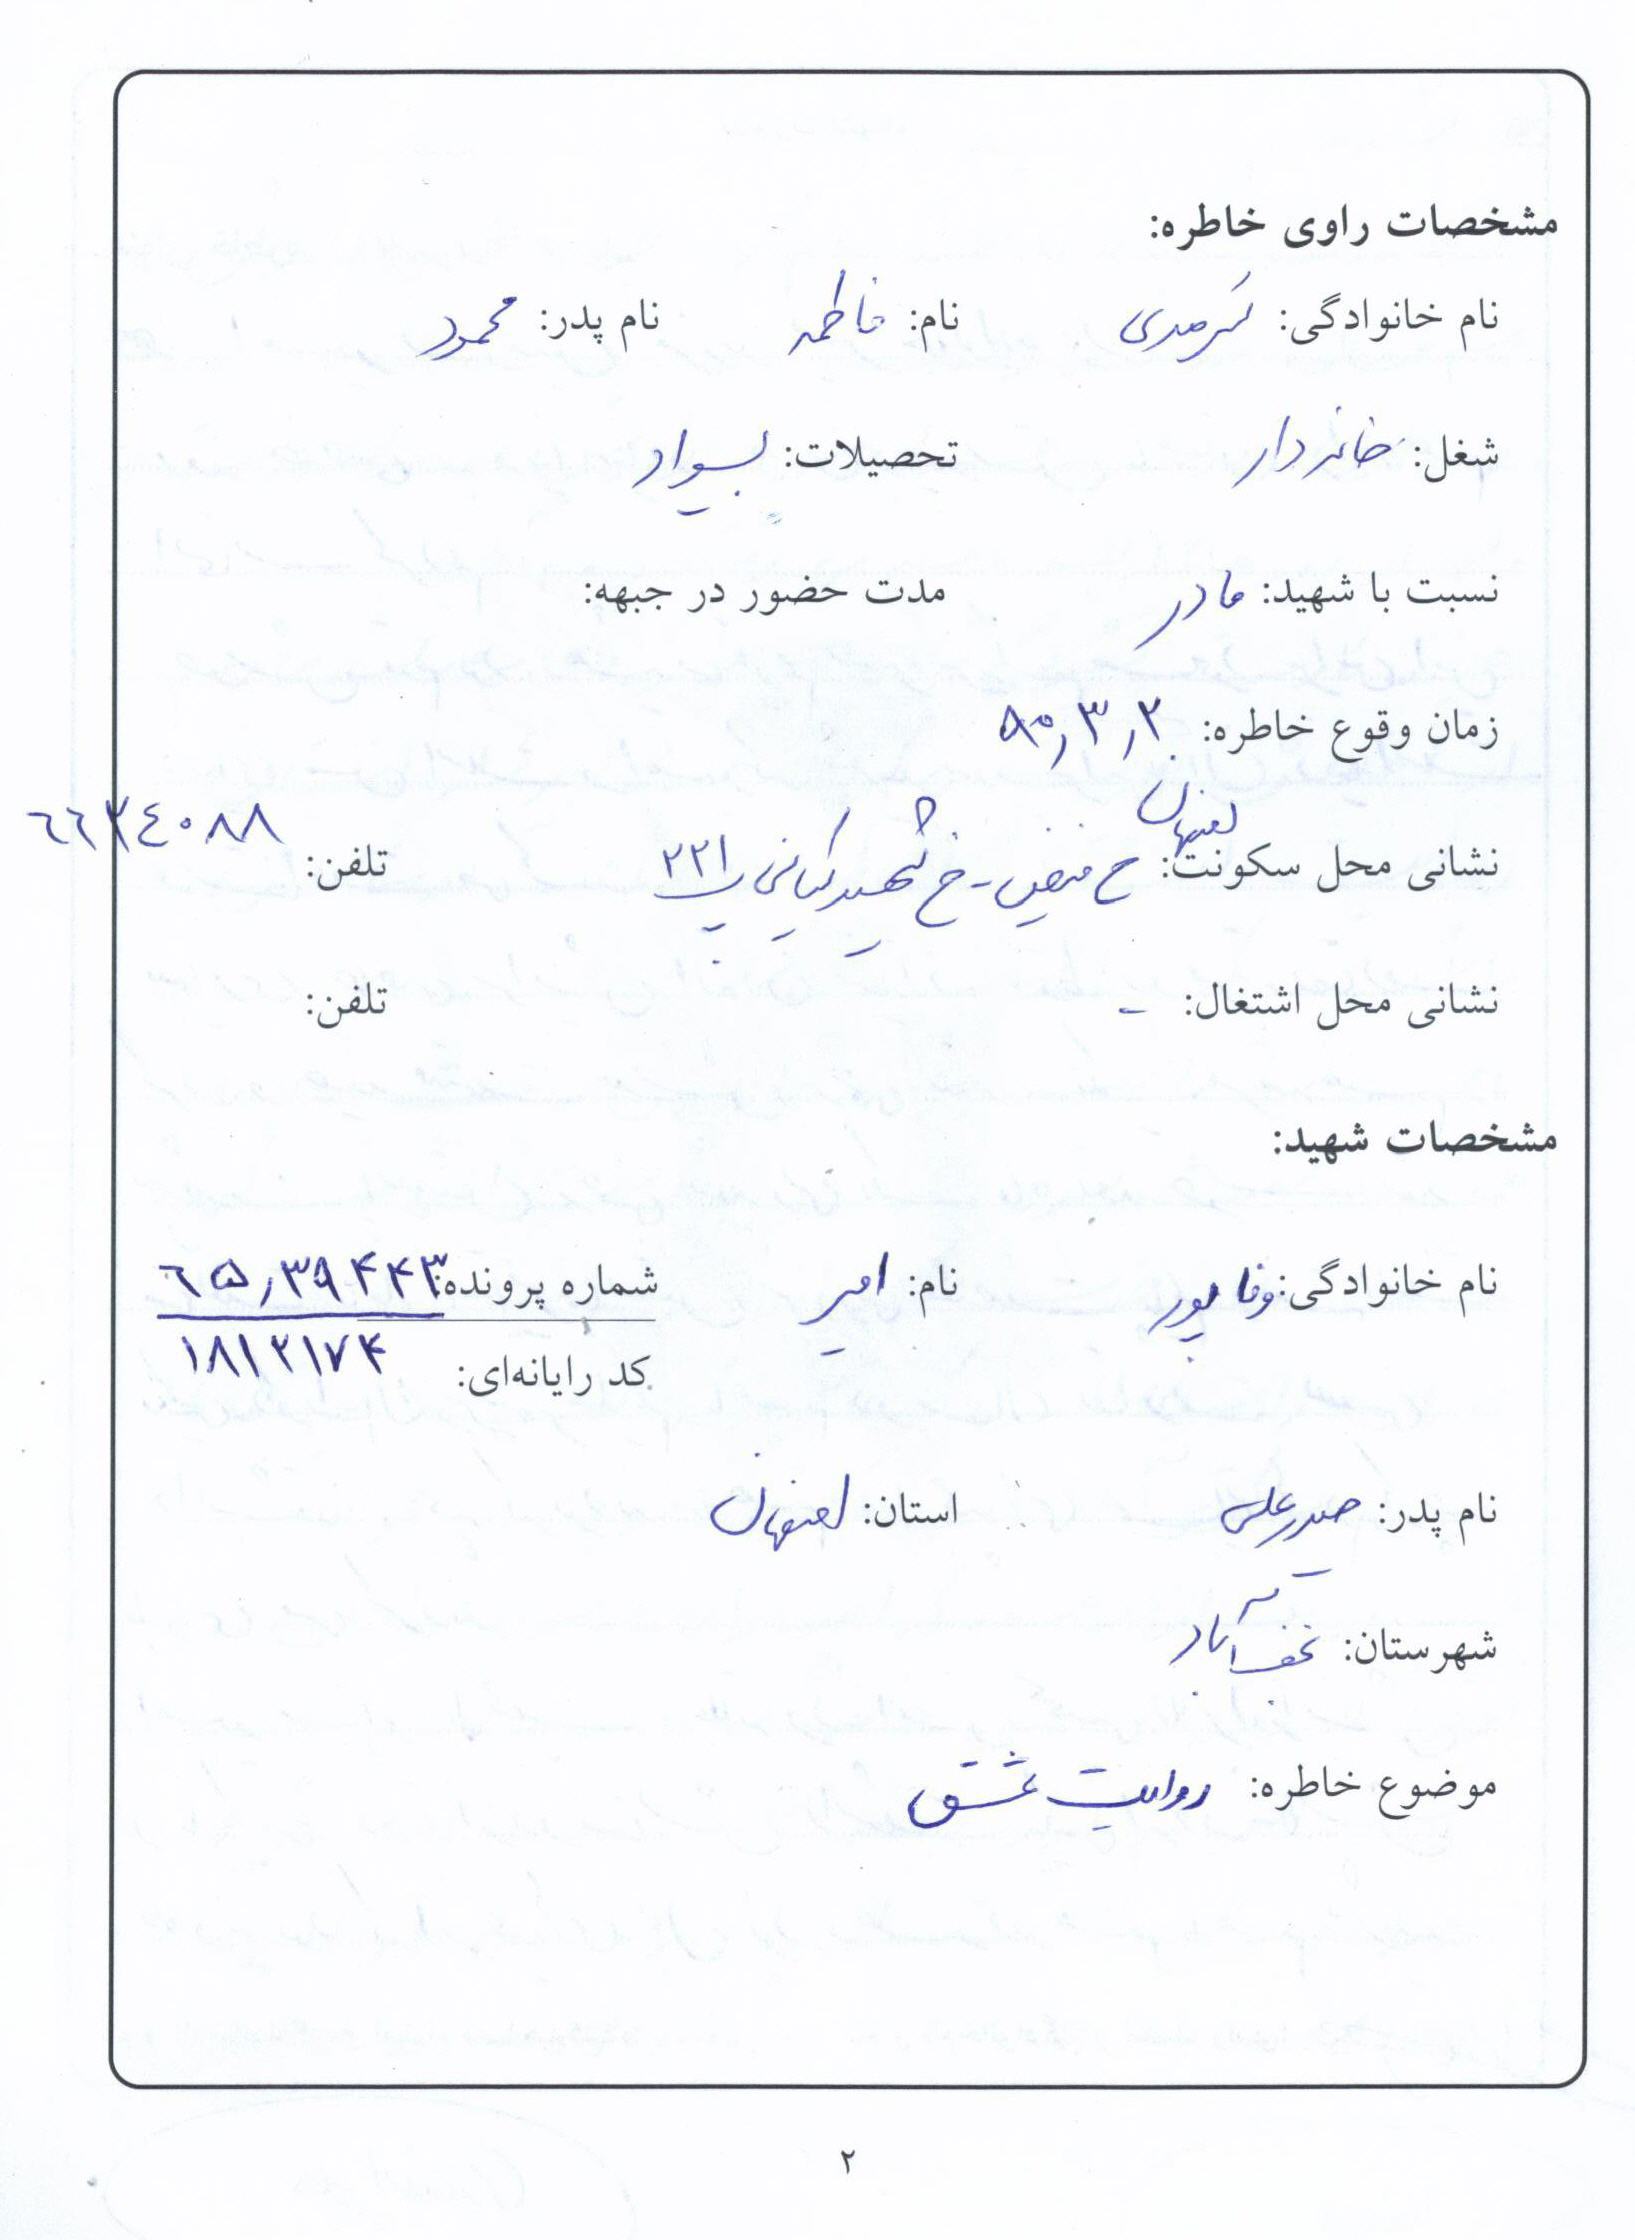 مشخصات راوی خاطره:
نام خانوادگی: نام: فاطمه نام پدر: محمود
شغل: خانه دار تحصیلات: بیسواد
نسبت با شهید: مادر مدت حضور در جبهه:
زمان وقوع خاطره: ۸۰٫۳٫۲
اصفهان
نشانی محل سکونت: خ فیض - خ شهید کیانی پ ۲۲۱ تلفن: ۶۶۲۴۰۸۸
نشانی محل اشتغال: - تلفن:
مشخصات شهید:
نام خانوادگی: وفا پور نام: امیر شماره پرونده: ۶۵٫۳۹۴۴۳
کد رایانه‌ای: ۱۸۱۲۱۷۴
نام پدر: حیدرعلی استان: اصفهان
شهرستان: نجف آباد
موضوع خاطره: روایت عشق
۲